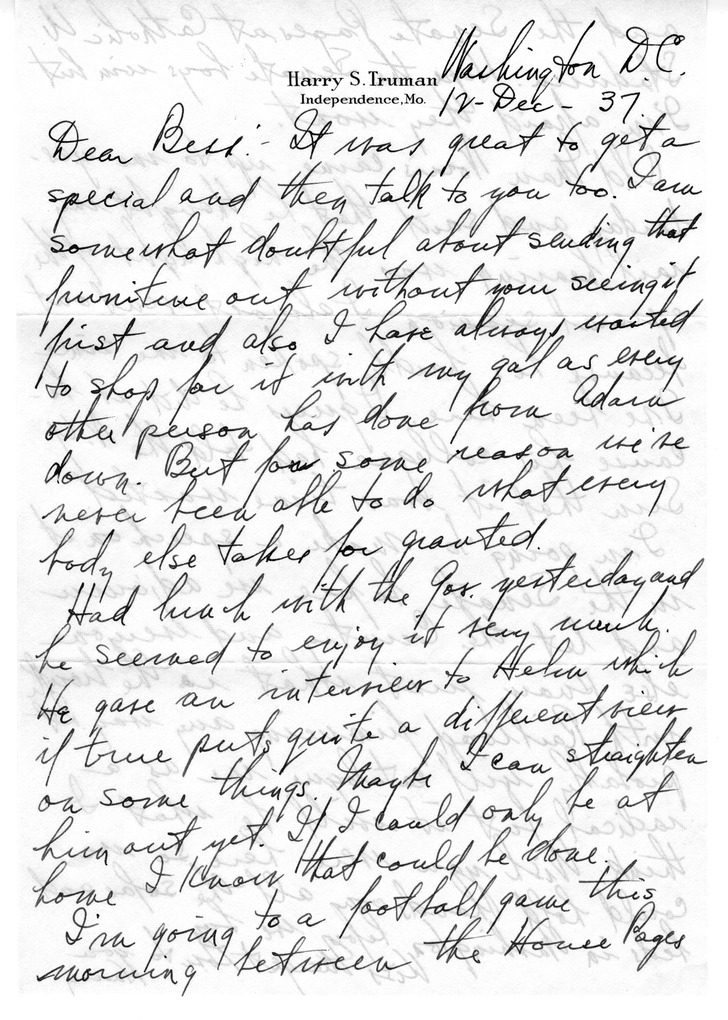 Harry S. Truman
Independence, Mo.
Washington D.C.
12-Dec-37.
Dear Bess:- It was great to get a
special and then talk to you too. I am
somewhat doubtful about sending that
furniture out without your seeing it
first and also I have always wanted
to shop for it with my gal as every
other person has done from Adam
down. But for some reason we've
never been able to do what every
body else takes for granted.
Had lunch with the Gov. yesterday and
he seemed to enjoy it very much.
He gave an interview to Helm which
if true puts quite a different view
on some things. Maybe I can straighten
him out yet. If I could only be at
home I know that could be done.
I'm going to a football game this
morning between the House Pages